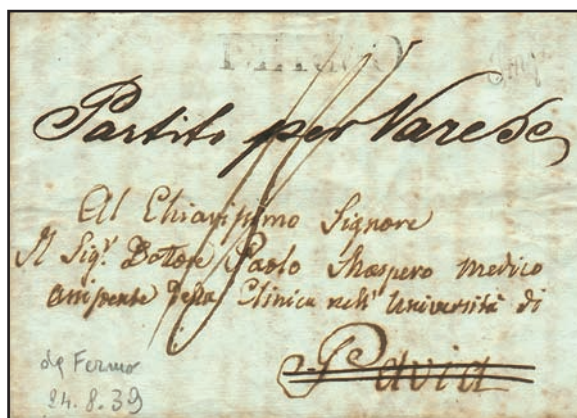 FERMO
Partito per Varese
Al Chiarissimo Signore
Il Sig.r Dottore Paolo Medico
della Clinica nell' Università di
Pavia
da Fermo
24. 8. 39